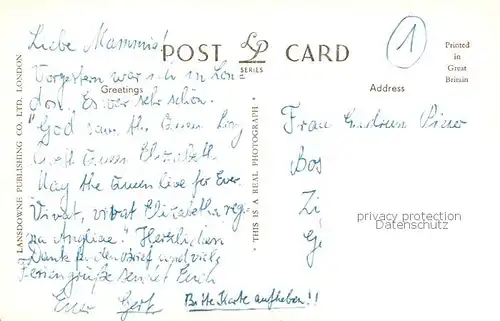 Liebe Mammie!
POST LP SERIES CARD
1
Printed in Great Britain
Greetings
Address
Vorgestern war ich in Lon-
don. Es war sehr schön.
"God save the Queen Long
Queen Elizabeth
May the Queen live for Ever.
Vivat, vivat Elizabetha reg-
na Angliae." Herzlichen
Dank für den Brief und viele
Feriengrüße sendet Euch
Euer Gerk
Bitte Karte aufheben!!
LANSDOWNE PUBLISHING CO. LTD. LONDON
* THIS IS A REAL PHOTOGRAPH *
Frau
Bos
Zi
privacy protection
Datenschutz